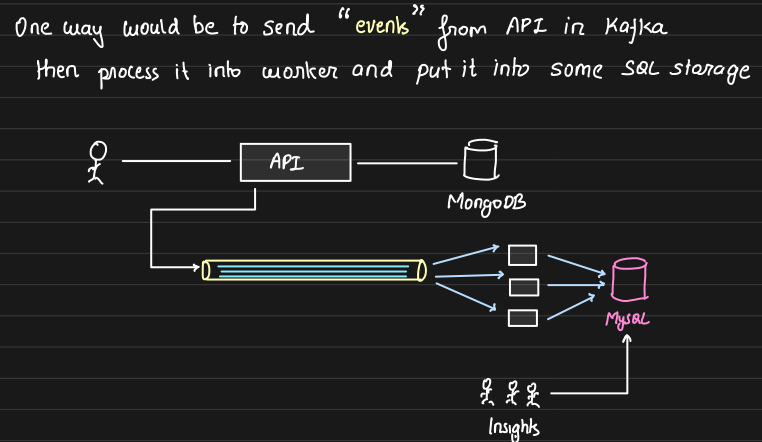 One way would be to send "events" from API in Kafka
then process it into worker and put it into some SQL storage
API
MongoDB
MySQL
Insights